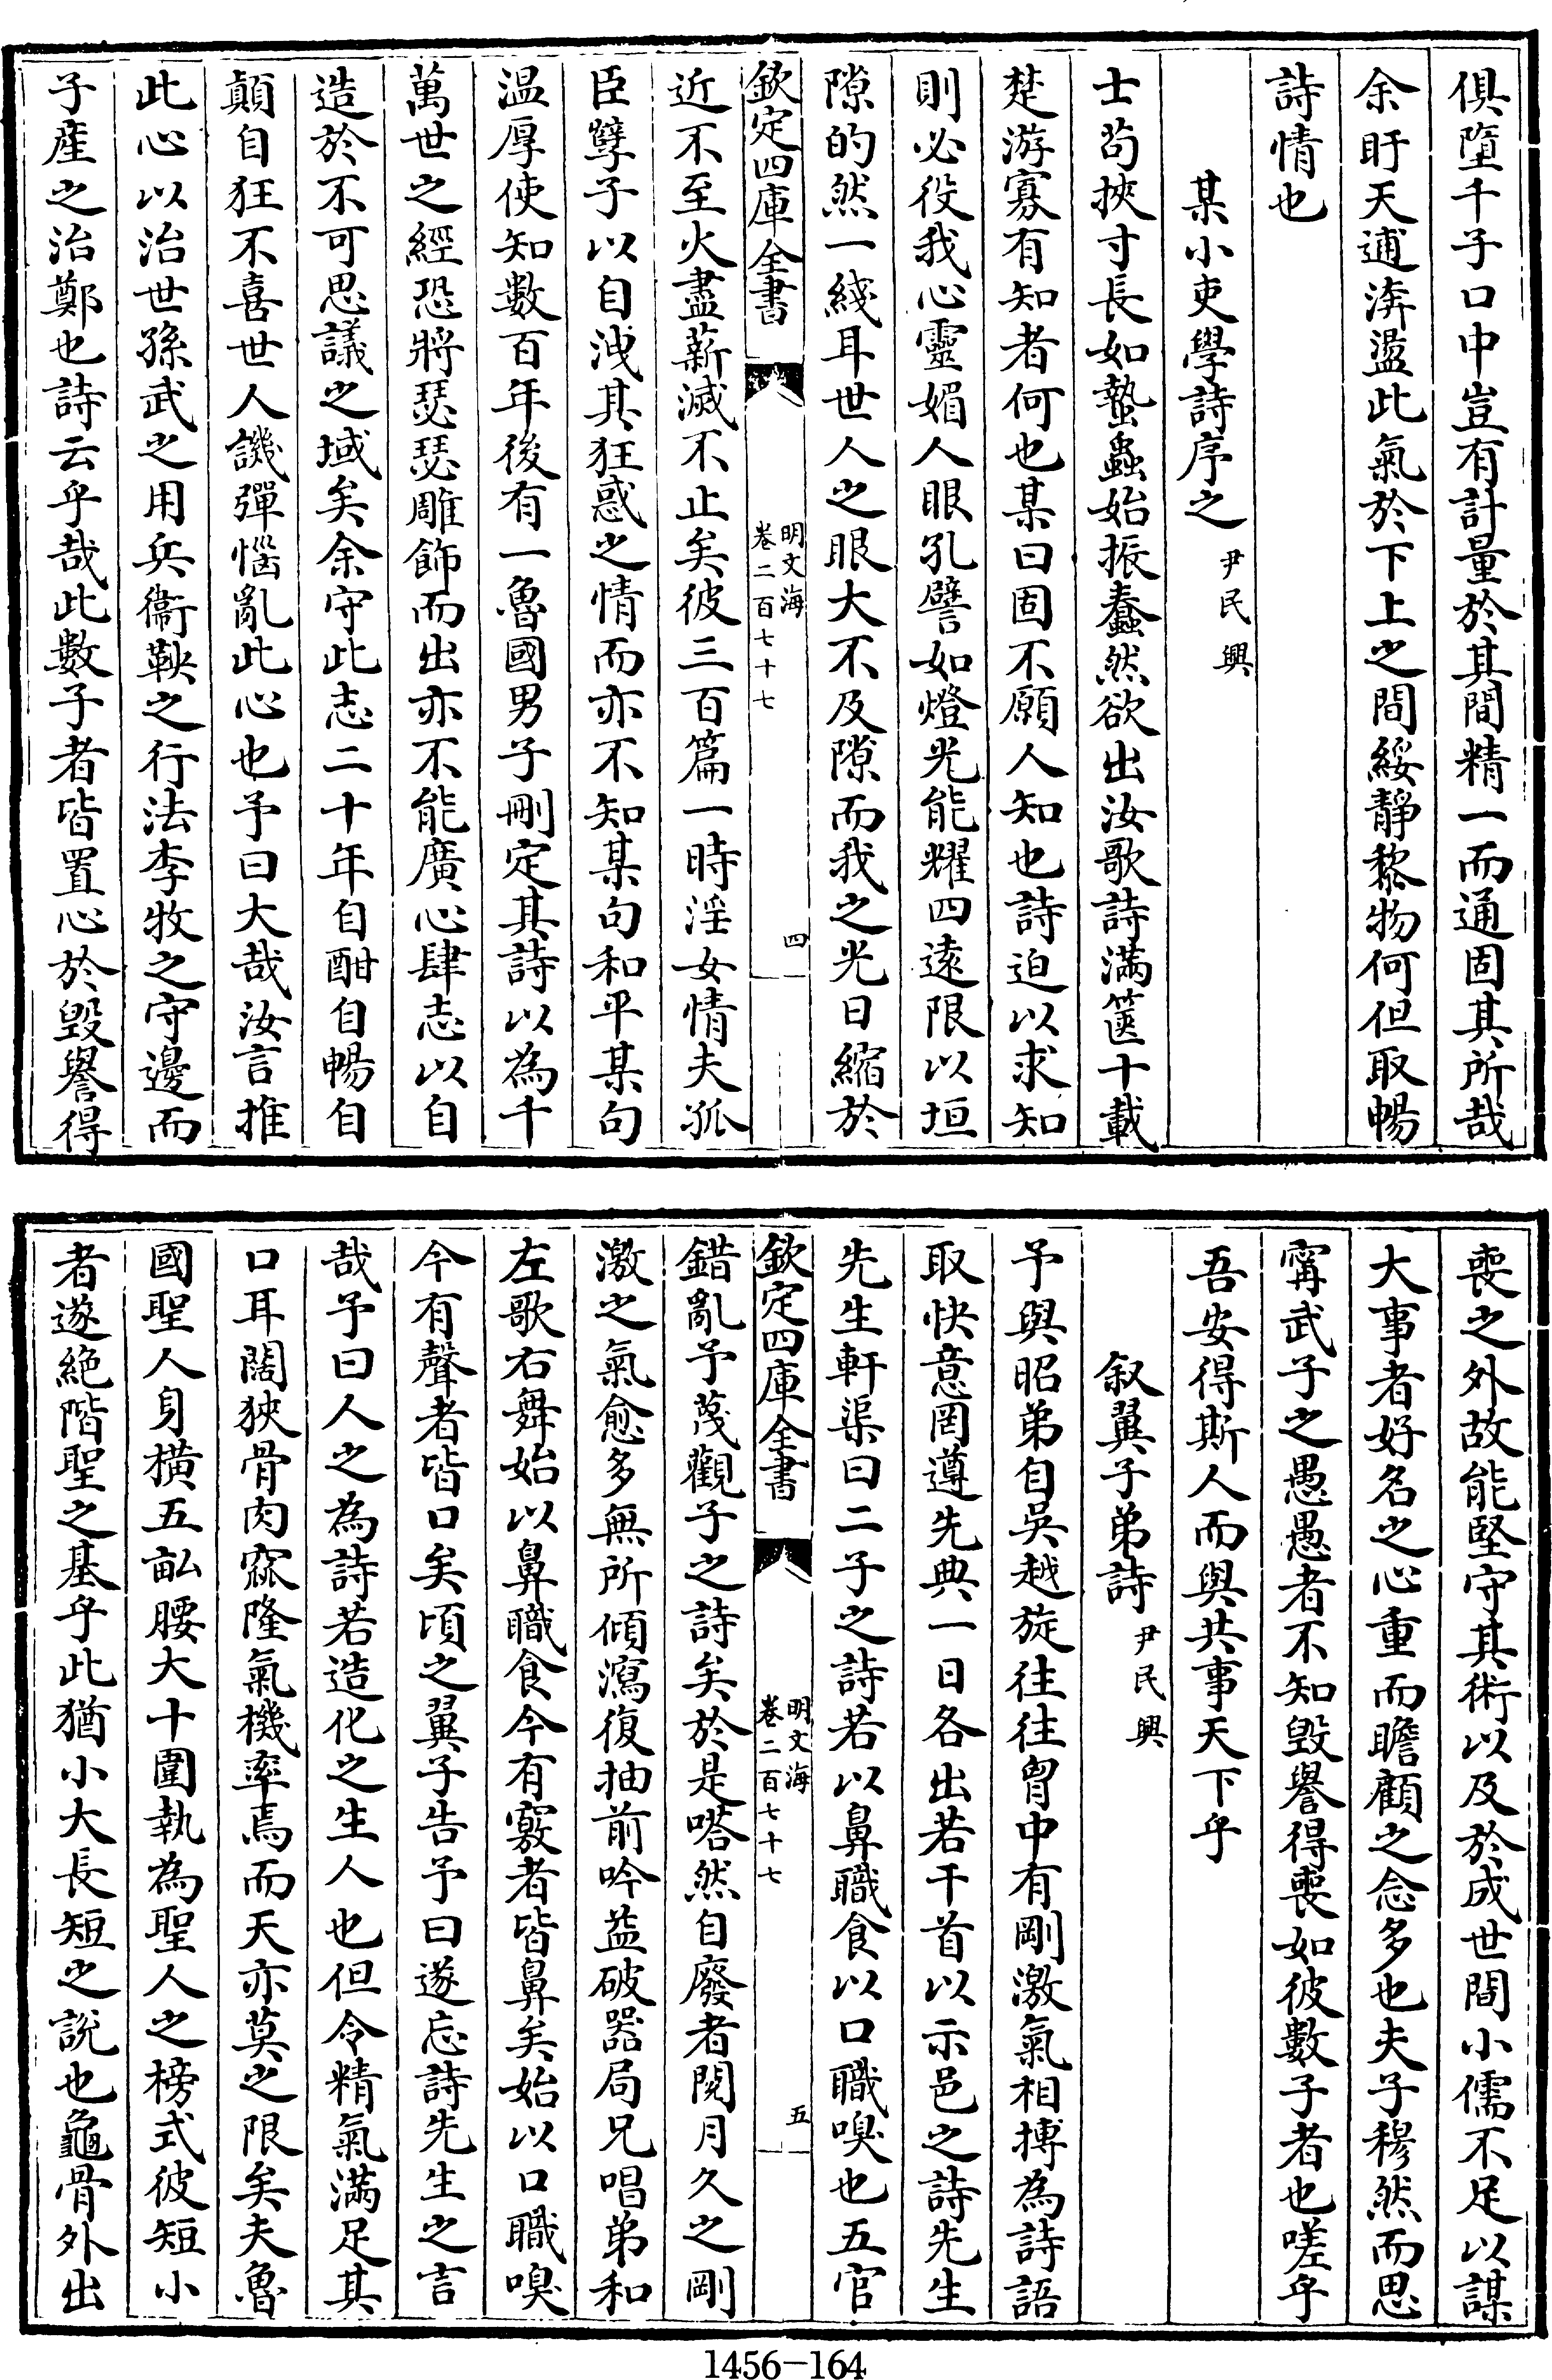 俱墮千子口中豈有計量於其間精一而通固其所哉
余盱天逋渀盪此氣於下上之間綏靜黎物何但取暢
詩情也
某小吏學詩序之 尹民興
士茍挾寸長如蟄蟲始振蠢然欲出汝歌詩滿篋十載
楚游寡有知者何也某曰固不願人知也詩迫以求知
則必役我心靈媚人眼孔譬如燈光能耀四遠限以垣
隙的然一綫耳世人之眼大不及隙而我之光日縮於
欽定四庫全書 明文海 卷二百七十七 四
近不至火盡薪滅不止矣彼三百篇一時淫女情夫孤
臣孽子以自洩其狂惑之情而亦不知某句和平某句
温厚使知數百年後有一魯國男子刪定其詩以為千
萬世之經恐將瑟瑟雕飾而出亦不能廣心肆志以自
造於不可思議之域矣余守此志二十年自酣自暢自
顛自狂不喜世人譏彈惱亂此心也予曰大哉汝言推
此心以治世孫武之用兵衞鞅之行法李牧之守邊而
子産之治鄭也詩云乎哉此數子者皆置心於毀譽得
喪之外故能堅守其術以及於成世間小儒不足以謀
大事者好名之心重而瞻顧之念多也夫子穆然而思
甯武子之愚愚者不知毀譽得喪如彼數子者也嗟乎
吾安得斯人而與共事天下乎
叙翼子弟詩 尹民興
予與昭弟自吳越旋往往胷中有剛激氣相搏為詩語
取快意罔遵先典一日各出若干首以示邑之詩先生
先生軒渠曰二子之詩若以鼻職食以口職嗅也五官
欽定四庫全書 明文海 卷二百七十七 五
錯亂予蔑觀子之詩矣於是嗒然自廢者閱月久之剛
激之氣愈多無所傾瀉復抽前吟益破器局兄唱弟和
左歌右舞始以鼻職食今有竅者皆鼻矣始以口職嗅
今有聲者皆口矣頃之翼子告予曰遂忘詩先生之言
哉予曰人之為詩若造化之生人也但令精氣滿足其
口耳闊狹骨肉窊隆氣機率焉而天亦莫之限矣夫魯
國聖人身橫五畝腰大十圍執為聖人之榜式彼短小
者遂絶階聖之基乎此猶小大長短之説也龜骨外出
1456-164